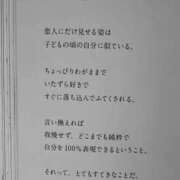 恋人にだけ見せる姿は
子どもの頃の自分に似ている。
ちょっぴりわがままで
いたずら好きで
すぐに落ち込んでふてくされる。
言い換えれば
我慢せず、どこまでも純粋で
自分を100%表現できるということ。
それって、とてもすてきなことだ。